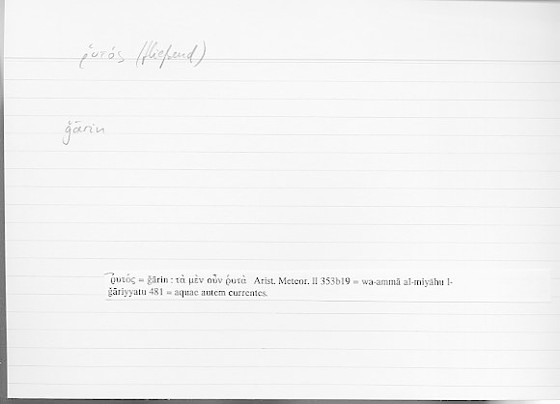 ῥυτός (fließend)
ǧārin
ῥυτός = ǧārin : τὰ μὲν οὖν ῥυτὰ Arist. Meteor. II 353b19 = wa-ammā al-miyāhu l-
ǧāriyyatu 481 = aquae autem currentes.